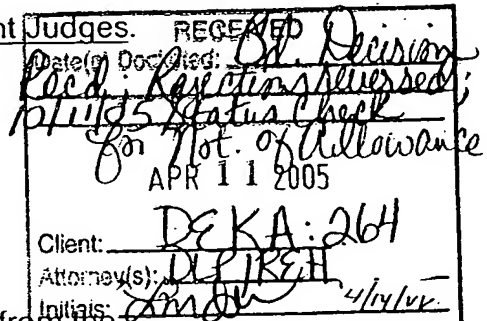 nt Judges. RECEIVED
Date(s) Docketed: Bd. Decision
Recd, Rejections reversed;
10/11/05 Status Check
for Not. of Allowance
APR 11 2005
Client: DEKA: 264
Attorney(s):
Initials:
from the